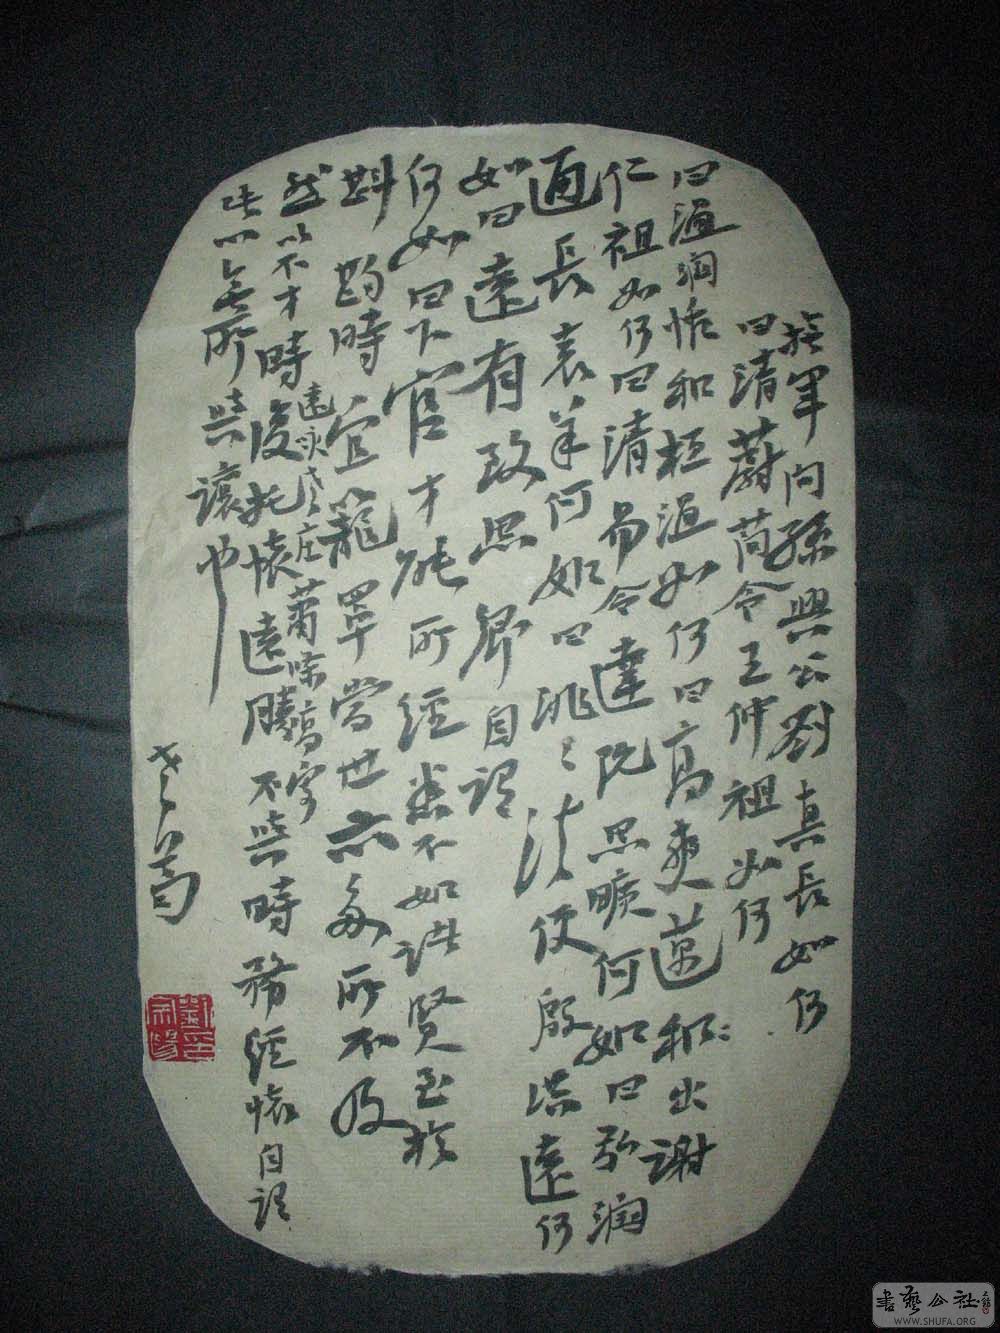 撫軍问孫興公劉真長如何
曰清蔚简令王仲祖如何
曰温润恬和桓温如何曰高爽邁和出謝
仁祖如何曰清易令達阮思曠何如曰弘润
通長袁羊何如曰洮〻清便殷洪遠何
如曰遠有致思卿自谓
何如曰下官才能所經悉不如诸賢至於
斟酌時宜籠罩當世亦多所不及
然以不才時復托懷遠勝不與時務經懷自谓
遠咏老庄萧條高寄
此心無所與讓也
書藝公社
WWW.SHUFA.ORG